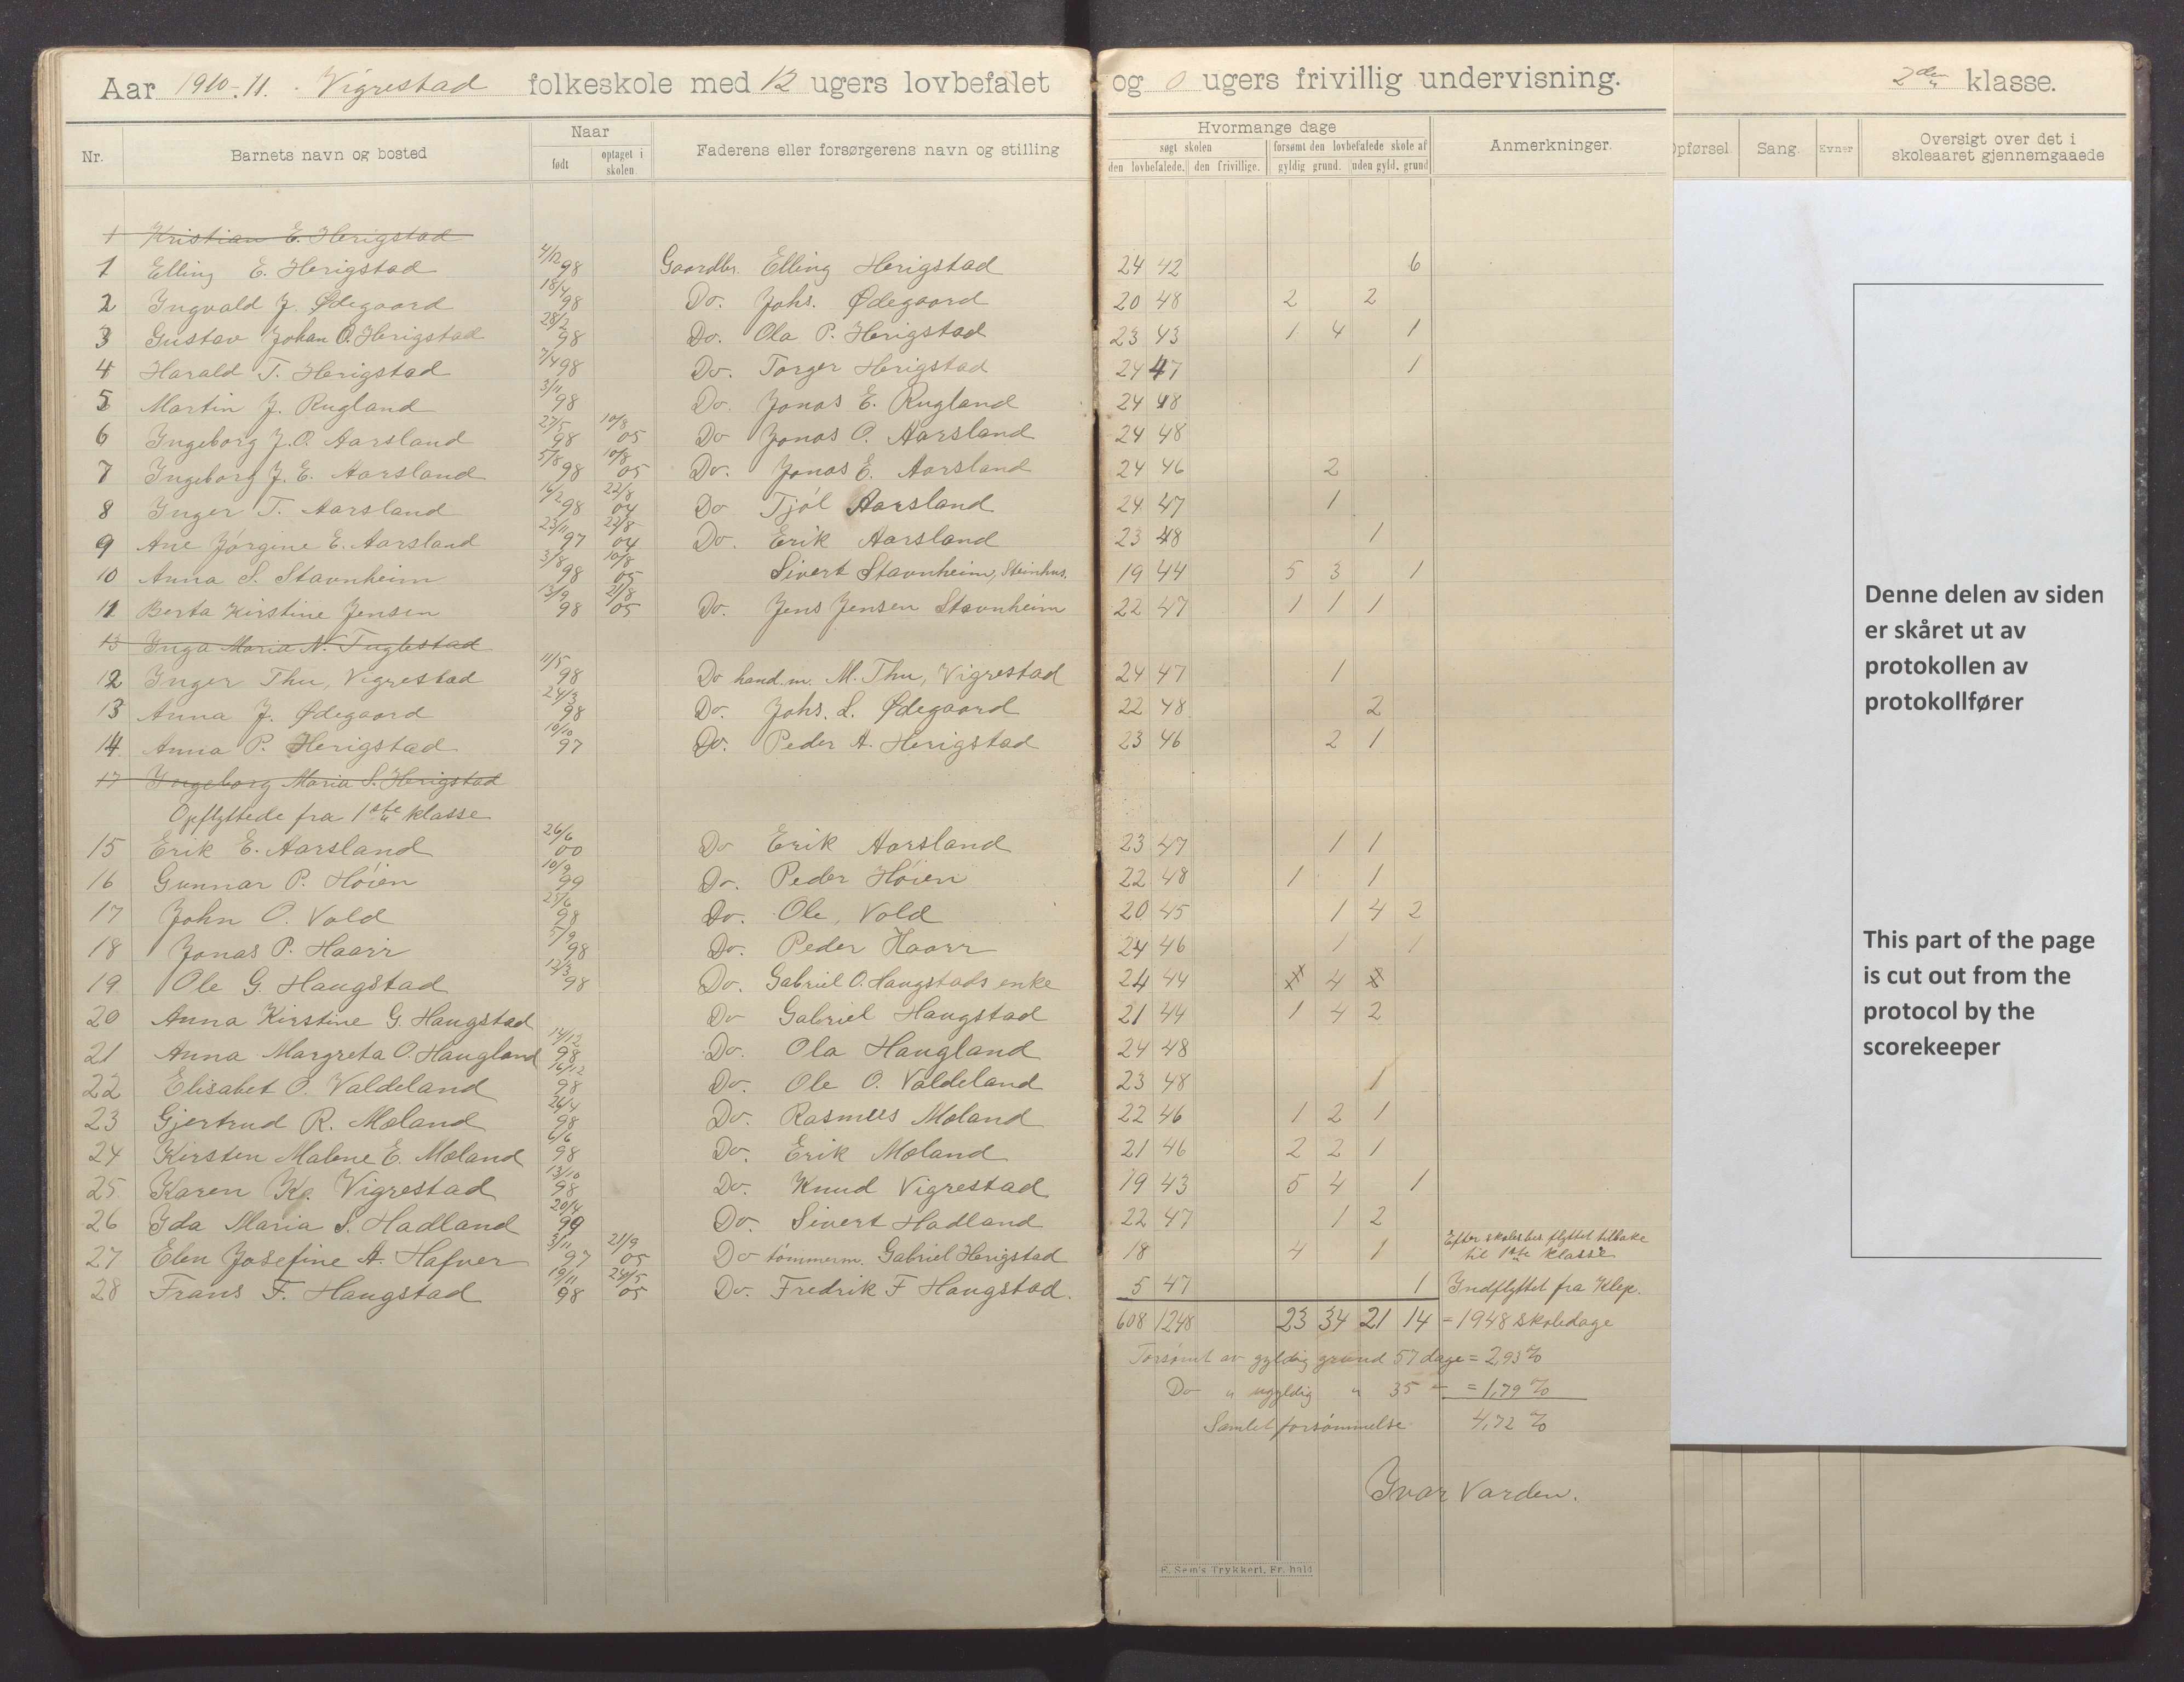 Aar 1910-11. Vigrestad folkeskole med 12 ugers lovbefalet og 0 ugers frivillig undervisning. 2den klasse.
Nr. Barnets navn og bosted Naar født optaget i skolen. Faderens eller forsørgerens navn og stilling Hvormange dage søgt skolen den lovbefalede. den frivillige. forsømt den lovbefalede skole af gyldig grund. uden gyld. grund Anmerkninger. Opførsel Sang. Evner Oversigt over det i skoleaaret gjennemgaaede
1 Kristian E. Herigstad
1 Elling E. Herigstad 4/12 98 Gaardbr. Elling Herigstad 24 42 6
2 Ingvald J. Ødegaard 18/4 98 Do. Johs. Ødegaard 20 48 2 2
3 Gustav Johan O. Herigstad 28/2 98 Do. Ola P. Herigstad 23 43 1 4 1
4 Harald T. Herigstad 7/4 98 Do. Torger Herigstad 24 47 1
5 Martin J. Rugland 3/11 98 Do. Jonas E. Rugland 24 48
6 Ingeborg J.O. Aarsland 27/5 98 10/8 05 Do Jonas O. Aarsland 24 48
7 Ingeborg J. E. Aarsland 5/8 98 10/8 05 Do. Jonas E. Aarsland 24 46 2
8 Inger T. Aarsland 16/2 98 22/8 04 Do Tjøl Aarsland 24 47 1
9 Ane Jørgine E. Aarsland 23/11 97 22/8 04 Do. Erik Aarsland 23 48 1
10 Anna S. Stavnheim 3/8 98 10/8 05 Sivert Stavnheim, Steinhus. 19 44 5 3 1
11 Berta Kirstine Jensen 13/9 98 21/8 05 Do. Jens Jensen Stavnheim 22 47 1 1 1
13 Inga Maria N. Fuglestad
12 Inger Thu, Vigrestad 11/5 98 Do hand.m. M. Thu, Vigrestad 24 47 1
13 Anna J. Ødegaard 24/3 98 Do. Johs. L. Ødegaard 22 48 2
14 Anna P. Herigstad 10/10 97 Do. Peder A. Herigstad 23 46 2 1
17 Ingeborg Maria S. Herigstad
Opflyttede fra 1ste klasse
15 Erik E. Aarsland 26/6 00 Do Erik Aarsland 23 47 1 1
16 Gunnar P. Høien 10/9 99 Do. Peder Høien 22 48 1 1
17 John O. Vold 25/6 98 Do. Ole, Vold 20 45 1 4 2
18 Jonas P. Haarr 5/9 98 Do. Peder Haarr 24 46 1 1
19 Ole G. Haugstad 12/3 98 Do. Gabriel O. Haugstads enke 24 44 4
20 Anna Kirstine G. Haugstad Do Gabriel Haugstad 21 44 1 4 2
21 Anna Margreta O. Haugland 14/12 98 Do. Ola Haugland 24 48
22 Elisabet O. Valdeland 16/12 98 Do. Ole O. Valdeland 23 48 1
23 Gjertrud R. Moland 26/4 98 Do. Rasmus Moland 22 46 1 2 1
24 Kirsten Malene E. Moland 6/6 98 Do. Erik Moland 21 46 2 2 1
25 Karen Kr. Vigrestad 13/10 98 Do. Knud Vigrestad 19 43 5 4 1
26 Ida Maria S. Hadland 20/4 99 Do. Sivert Hadland 22 47 1 2
27 Elen Josefine A. Hafner 3/11 97 21/9 05 Do tømmerm. Gabriel Herigstad 18 4 1 Efter skolesbes flyttet tilbake til 1ste klasse
28 Frans F. Haugstad 19/11 98 24/5 05 Do. Fredrik F Haugstad. 5 47 1 Indflyttet fra Klep.
608 1248 23 34 21 14 = 1948 skoledage
Forsømt av gyldig grund 57 dage = 2,93 %
Do " ugyldig " 35 " = 1,79 %
Samlet forsømmelse 4,72 %
Ivar Varden.
E. Sem's Trykkeri. Fr. hald
Denne delen av siden
er skåret ut av
protokollen av
protokollfører
This part of the page
is cut out from the
protocol by the
scorekeeper